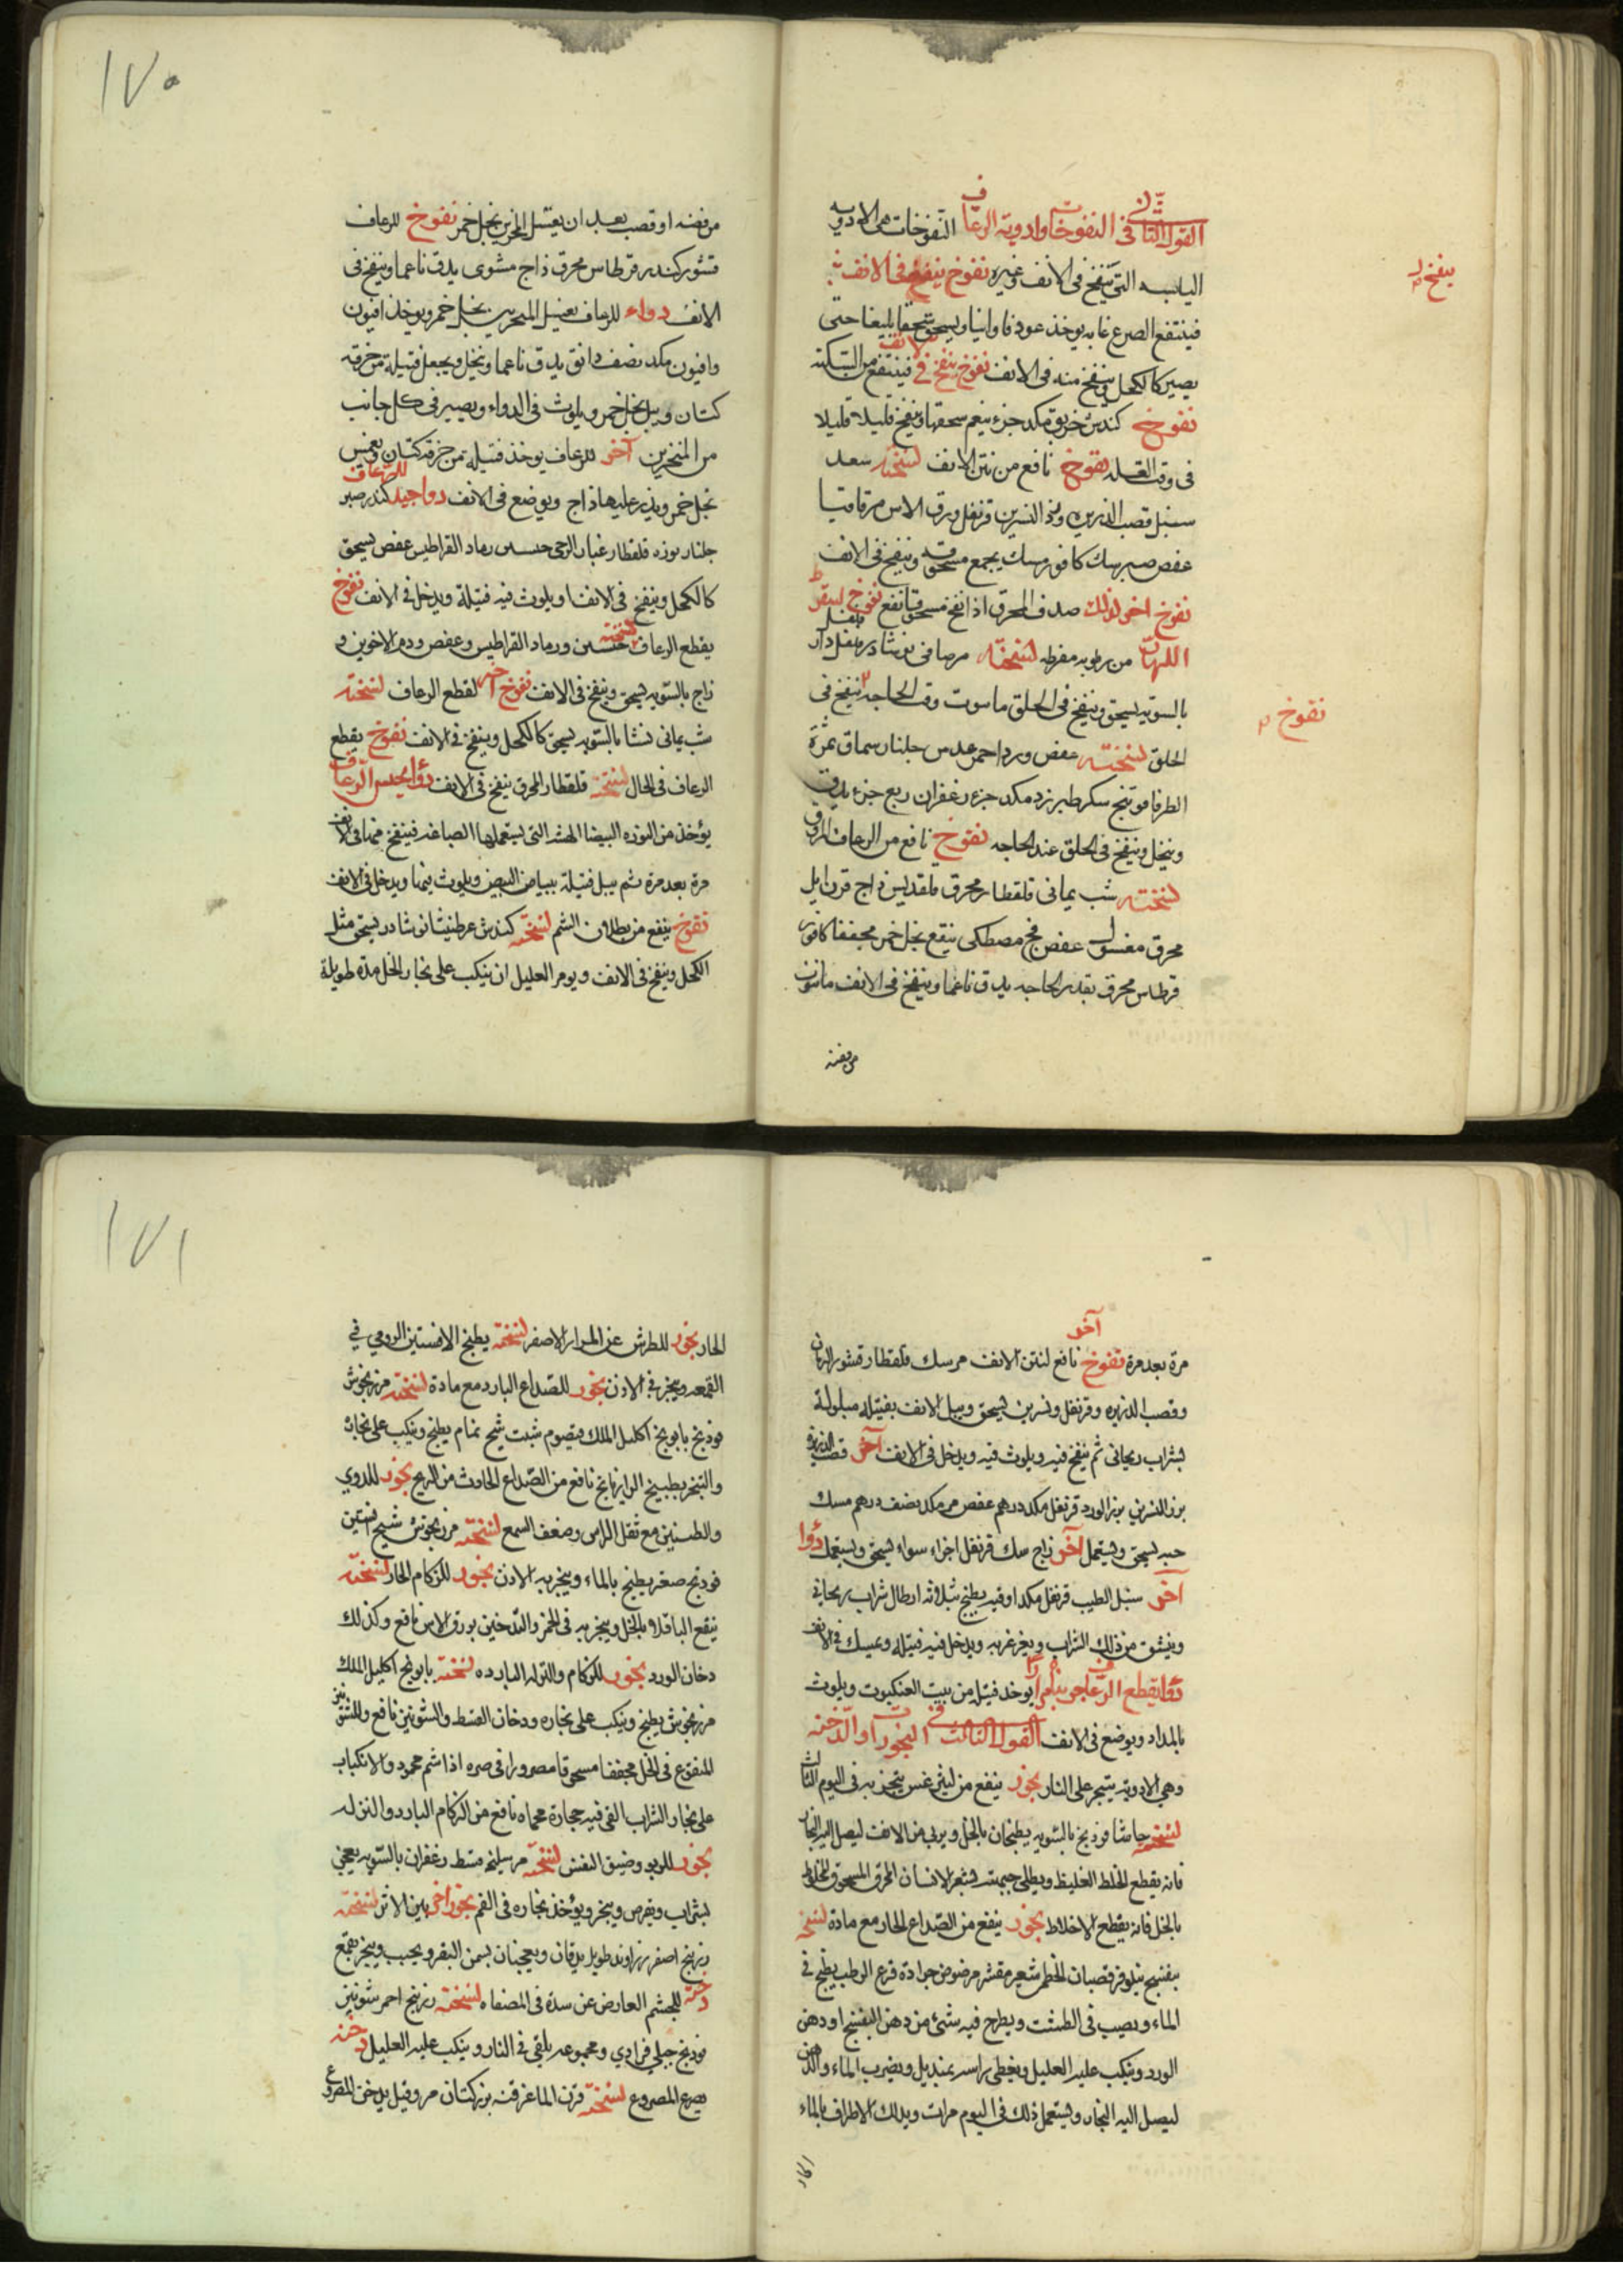 القول الثاني في النفوخات وادوية الرعاف النفوخات هي الادوية
اليابسه التي تنفخ في الانف وغيره نفوخ ينفخ في الانف
ينفخ
فينتفع الصرع غايه يوخذ عود فاوانيا ويسحق سحقا بليغا حتى
يصير كالكحل وينفخ منه في الانف نفوخ ينفخ في الانف فينتفع من السكته
نفوخ كندس خربق مكد جزء ينعم سحقها وينفخ قليلا قليلا
في وقت العله نفوخ نافع من نتن الانف لنسخته سعد
سنبل قصب الذريره ورد النسرين قرنفل ورق الاس مر قاقيا
عفص صبر سك كافور مسك يجمع مسحوقه وينفخ في الانف
نفوخ اخر لذلك صدف المحرق اذا نفخ مسحوقا نفع نفوخ لسقوط
اللهاة من رطوبه مفرطه لنسخته مر صافي نوشادر
بالسويه يسحق وينفخ في الحلق وقت الحاجه ينفخ في
نفوخ
الحلق لنسخته عفص ورد احمر عدس جلنار سماق ثمرة
الطرفا فوتنج سكر طبرزد مكد جزء زعفران ربع جزء يدق
وينخل وينفخ في الحلق عند الحاجه نفوخ نافع من الرعاف
لنسخته شب يماني قلقطار محرق قلقديس زاج قرن ايل
محرق مغسول عفص فج مصطكى ينقع بخل خمر مجففا كافور
قرطاس محرق بقدر الحاجه يدق ناعما وينفخ في الانف
من فضه
١٧٥
من فضه او قصب بعد ان يغسل المنخرين بخل خمر نفوخ للرعاف
قشور كندر قرطاس محرق زاج مشوى يدق ناعما وينفخ في
الانف دواء للرعاف يغسل المنخرين بخل خمر ويوخذ افيون
وافيون مكد نصف دانق يدق ناعما وينخل ويجعل فتيله من خرقه
كتان ويبل بخل خمر ويلوث في الدواء ويصير في كل جانب
من المنخرين آخر للرعاف يوخذ فتيله من خرقه كتان ويغمس
بخل خمر ويذر عليها زاج ويوضع في الانف دوا جيد للرعاف كندر صبر
جلنار نوره قلقطار غبار الرحى رماد القراطيس عفص يسحق
كالكحل وينفخ في الانف او يلوث فيه فتيلة ويدخل في الانف نفوخ
يقطع الرعاف لنسخته ورماد القراطيس وعفص ودم الاخوين و
زاج بالسويه يسحق وينفخ في الانف نفوخ اخر لقطع الرعاف لنسخته
شب يماني نشا بالسويه يسحق كالكحل وينفخ في الانف نفوخ يقطع
الرعاف في الحال لنسخته قلقطار المحرق ينفخ في الانف دواء يحبس الرعاف
يؤخذ من النوره البيضا الهشه التي يستعملها الصباغه فينفخ منها في الانف
مرة بعد مرة ثم يبل فتيلة ببياض البيض ويلوث بها ويدخل في الانف
نفوخ ينفع من بطلان الشم لنسخته كندش عرطنيثا نوشادر يسحق مثل
الكحل وينفخ في الانف ويومر العليل ان ينكب على بخار الخل مدة طويلة
آخر
مرة بعد مرة نفوخ نافع لنتن الانف مر سك قلقطار قشور الرمان
وقصب الذريره وقرنفل ونسرين يسحق ويبل الانف بفتيله مبلولة
بشراب ريحاني ثم ينفخ فيه ويلوث فيه ويدخل في الانف آخر قصب الذريره
بزر النسرين بزر الورد قرنفل مكد درهم عفص مر مكد نصف درهم مسك
حبه يسحق ويستعمل آخر زاج سك قرنفل اجزاء سواء يسحق ويستعمل دوا
آخر سنبل الطيب قرنفل مكد اوقيه يطبخ بثلاثه ارطال شراب ريحاني
وينشق من ذلك الشراب ويغرغر به ويدخل فيه فتيله ويمسك في الانف
دوا يقطع الرعاف يوخد فتيل من بيت العنكبوت ويلوث
بالمداد ويوضع في الانف القول الثالث في البخورات والدخنه
وهي الادويه تبخر على النار بخور ينفع من ليثرغس يتبخر به في اليوم الثالث
لنسخته حاشا فودنج بالسويه يطبخان بالخل ويربى من الانف ليصل اليه البخار
فانه يقطع الخلط الغليظ ويطلى جبهته بشعر الانسان المحرق المسحوق المخلوط
بالخل فانه يقطع الاخلاط بخور ينفع من الصداع الحار مع مادة لنسخته
بنفسج نيلوفر قصبان الخطمى شعير مقشر مرضوض جرادة قرع الرطب يطبخ في
الماء ويصب في الطشت ويطرح فيه شئ من دهن البنفسج او دهن
الورد وينكب عليه العليل ويغطى راسه بمنديل ويضرب الماء والدهن
ليصل اليه البخار ويستعمل ذلك في اليوم مرات ويدلك الاطراف بالماء
الحار
١٧١
الحار بخور للطرش عن المرار الاصفر لنسخته يطبخ الافسنتين الرومي في
القمقمه ويبخر في الاذن بخور للصداع البارد مع مادة لنسخته مرزنجوش
فودنج بابونج اكليل الملك قيصوم شبت شيح نمام يطبخ وينكب على بخاره
والتبخر بطبيخ الرازيانج نافع من الصداع الحادث من الريح بخور للدوي
والطنين مع ثقل الراس وضعف السمع لنسخته مرزنجوش شيح افسنتين
فودنج صعتر يطبخ بالماء ويبخر به الاذن بخور للزكام الحار لنسخته
ينقع الباقلا بالخل ويبخر به في الخمر والتدخين بورق الاس نافع وكذلك
دخان الورد بخور للزكام والنزله البارده لنسخته بابونج اكليل الملك
مرزنجوش يطبخ وينكب على بخاره ودخان القسط والشونيز نافع وللشونيز
المنقوع في الخل مجففا مسحوقا مصرورا في صره اذا شم محمود والانكباب
على بخار الشراب القى فيه حجارة محماه نافع من الزكام البارد والنزله
بخور للربو وضيق النفس لنسخته مر سليخه قسط زعفران بالسويه يعجن
بشراب ويقرص ويبخر ويؤخذ بخاره في الفم بخور اخر بين الاثر لنسخته
زرنيخ اصفر زراوند طويل يدقان ويعجنان بسمن البقر ويحبب ويبخر بقمع
دخنة للجشم العارض عن سدة في المصفاه لنسخته زرنيخ احمر شونيز
فودنج جبلي فرادي ومجموعه يلقى في النار وينكب عليه العليل دخنه
يصرع المصروع لنسخته قرن الماعز قنه بزر كتان مر وقيل يدخن المصروع